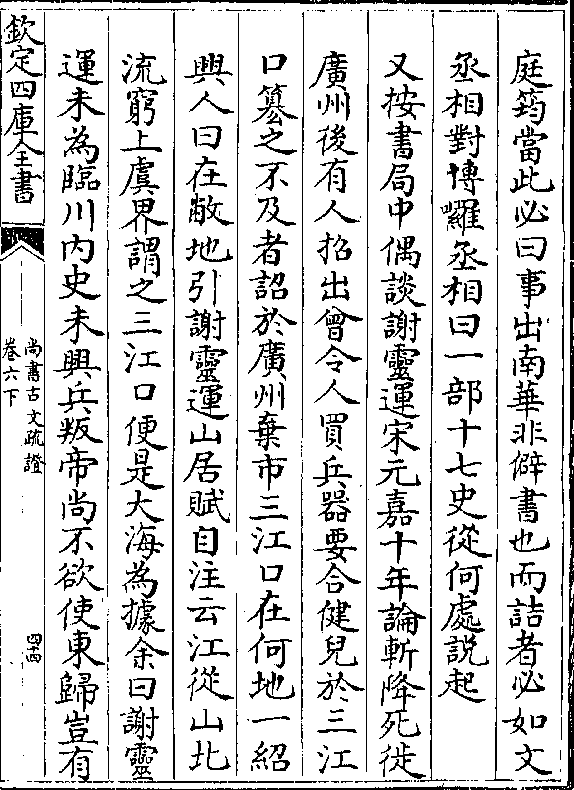 庭筠當此必曰事出南華非僻書也而詰者必如文
丞相對博囉丞相曰一部十七史從何處説起
又按書局中偶談謝靈運宋元嘉十年論斬降死徙
廣州後有人招出曾令人買兵器要合健兒於三江
口簒之不及者詔於廣州棄市三江口在何地一紹
興人曰在敝地引謝靈運山居賦自注云江從山北
流窮上虞界謂之三江口便是大海為據余曰謝靈
運未為臨川内史未興兵叛帝尚不欲使東歸豈有
欽定四庫全書
尚書古文疏證
卷六下
四十四